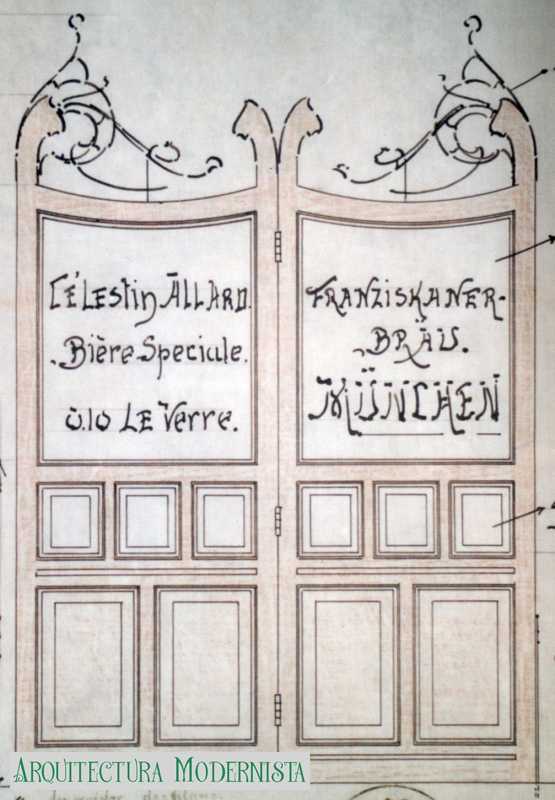 CÉLESTIN ALLARD.
Bière Speciale.
0.10 LE Verre.
FRANZISKANER-
BRÄU.
MÜNCHEN
ARQUITECTURA MODERNISTA